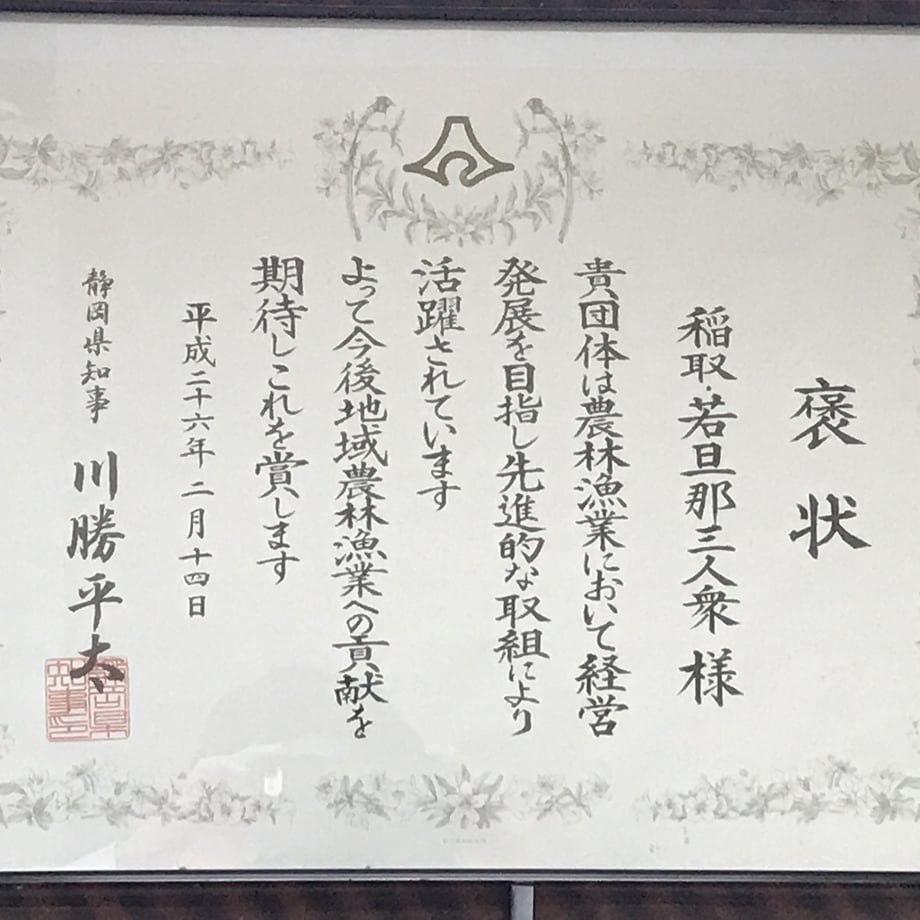 褒状
稲取・若旦那三人衆 様
貴団体は農林漁業において経営
発展を目指し先進的な取組により
活躍されています
よって今後地域農林漁業への貢献を
期待しこれを賞します
平成二十六年二月十四日
静岡県知事 川勝平太